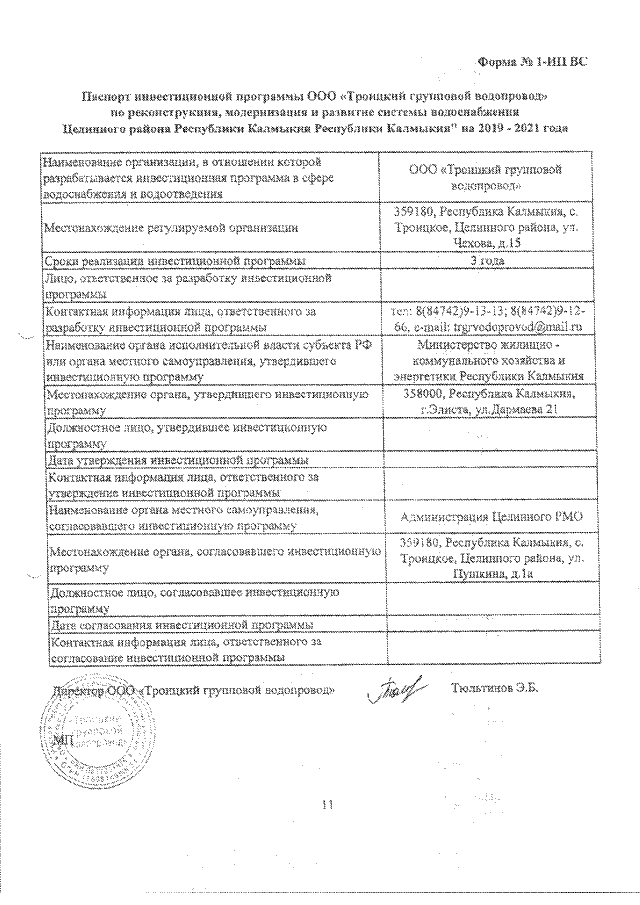 Форма № 1-ИП ВС
Паспорт инвестиционной программы ООО «Троицкий групповой водопровод»
по реконструкция, модернизация и развитие системы водоснабжения
Целинного района Республики Калмыкия Республики Калмыкия" на 2019 - 2021 года
Наименование организации, в отношении которой
разрабатывается инвестиционная программа в сфере
водоснабжения и водоотведения
ООО «Троицкий групповой
водопровод»
Местонахождение регулируемой организации
359180, Республика Калмыкия, с.
Троицкое, Целинного района, ул.
Чехова, д.15
Сроки реализации инвестиционной программы
3 года
Лицо, ответственное за разработку инвестиционной
программы
Контактная информация лица, ответственного за
разработку инвестиционной программы
тел: 8(84742)9-13-13; 8(84742)9-12-
66, e-mail: trgrvodoprovod@mail.ru
Наименование органа исполнительной власти субъекта РФ
или органа местного самоуправления, утвердившего
инвестиционную программу
Министерство жилищно -
коммунального хозяйства и
энергетики Республики Калмыкия
Местонахождение органа, утвердившего инвестиционную
программу
358000, Республика Калмыкия,
г.Элиста, ул.Дармаева 21
Должностное лицо, утвердившее инвестиционную
программу
Дата утверждения инвестиционной программы
Контактная информация лица, ответственного за
утверждение инвестиционной программы
Наименование органа местного самоуправления,
согласовавшего инвестиционную программу
Администрация Целинного РМО
Местонахождение органа, согласовавшего инвестиционную
программу
359180, Республика Калмыкия, с.
Троицкое, Целинного района, ул.
Пушкина, д.1а
Должностное лицо, согласовавшее инвестиционную
программу
Дата согласования инвестиционной программы
Контактная информация лица, ответственного за
согласование инвестиционной программы
Директор ООО «Троицкий групповой водопровод»
Тюльтинов Э.Б.
МП
11